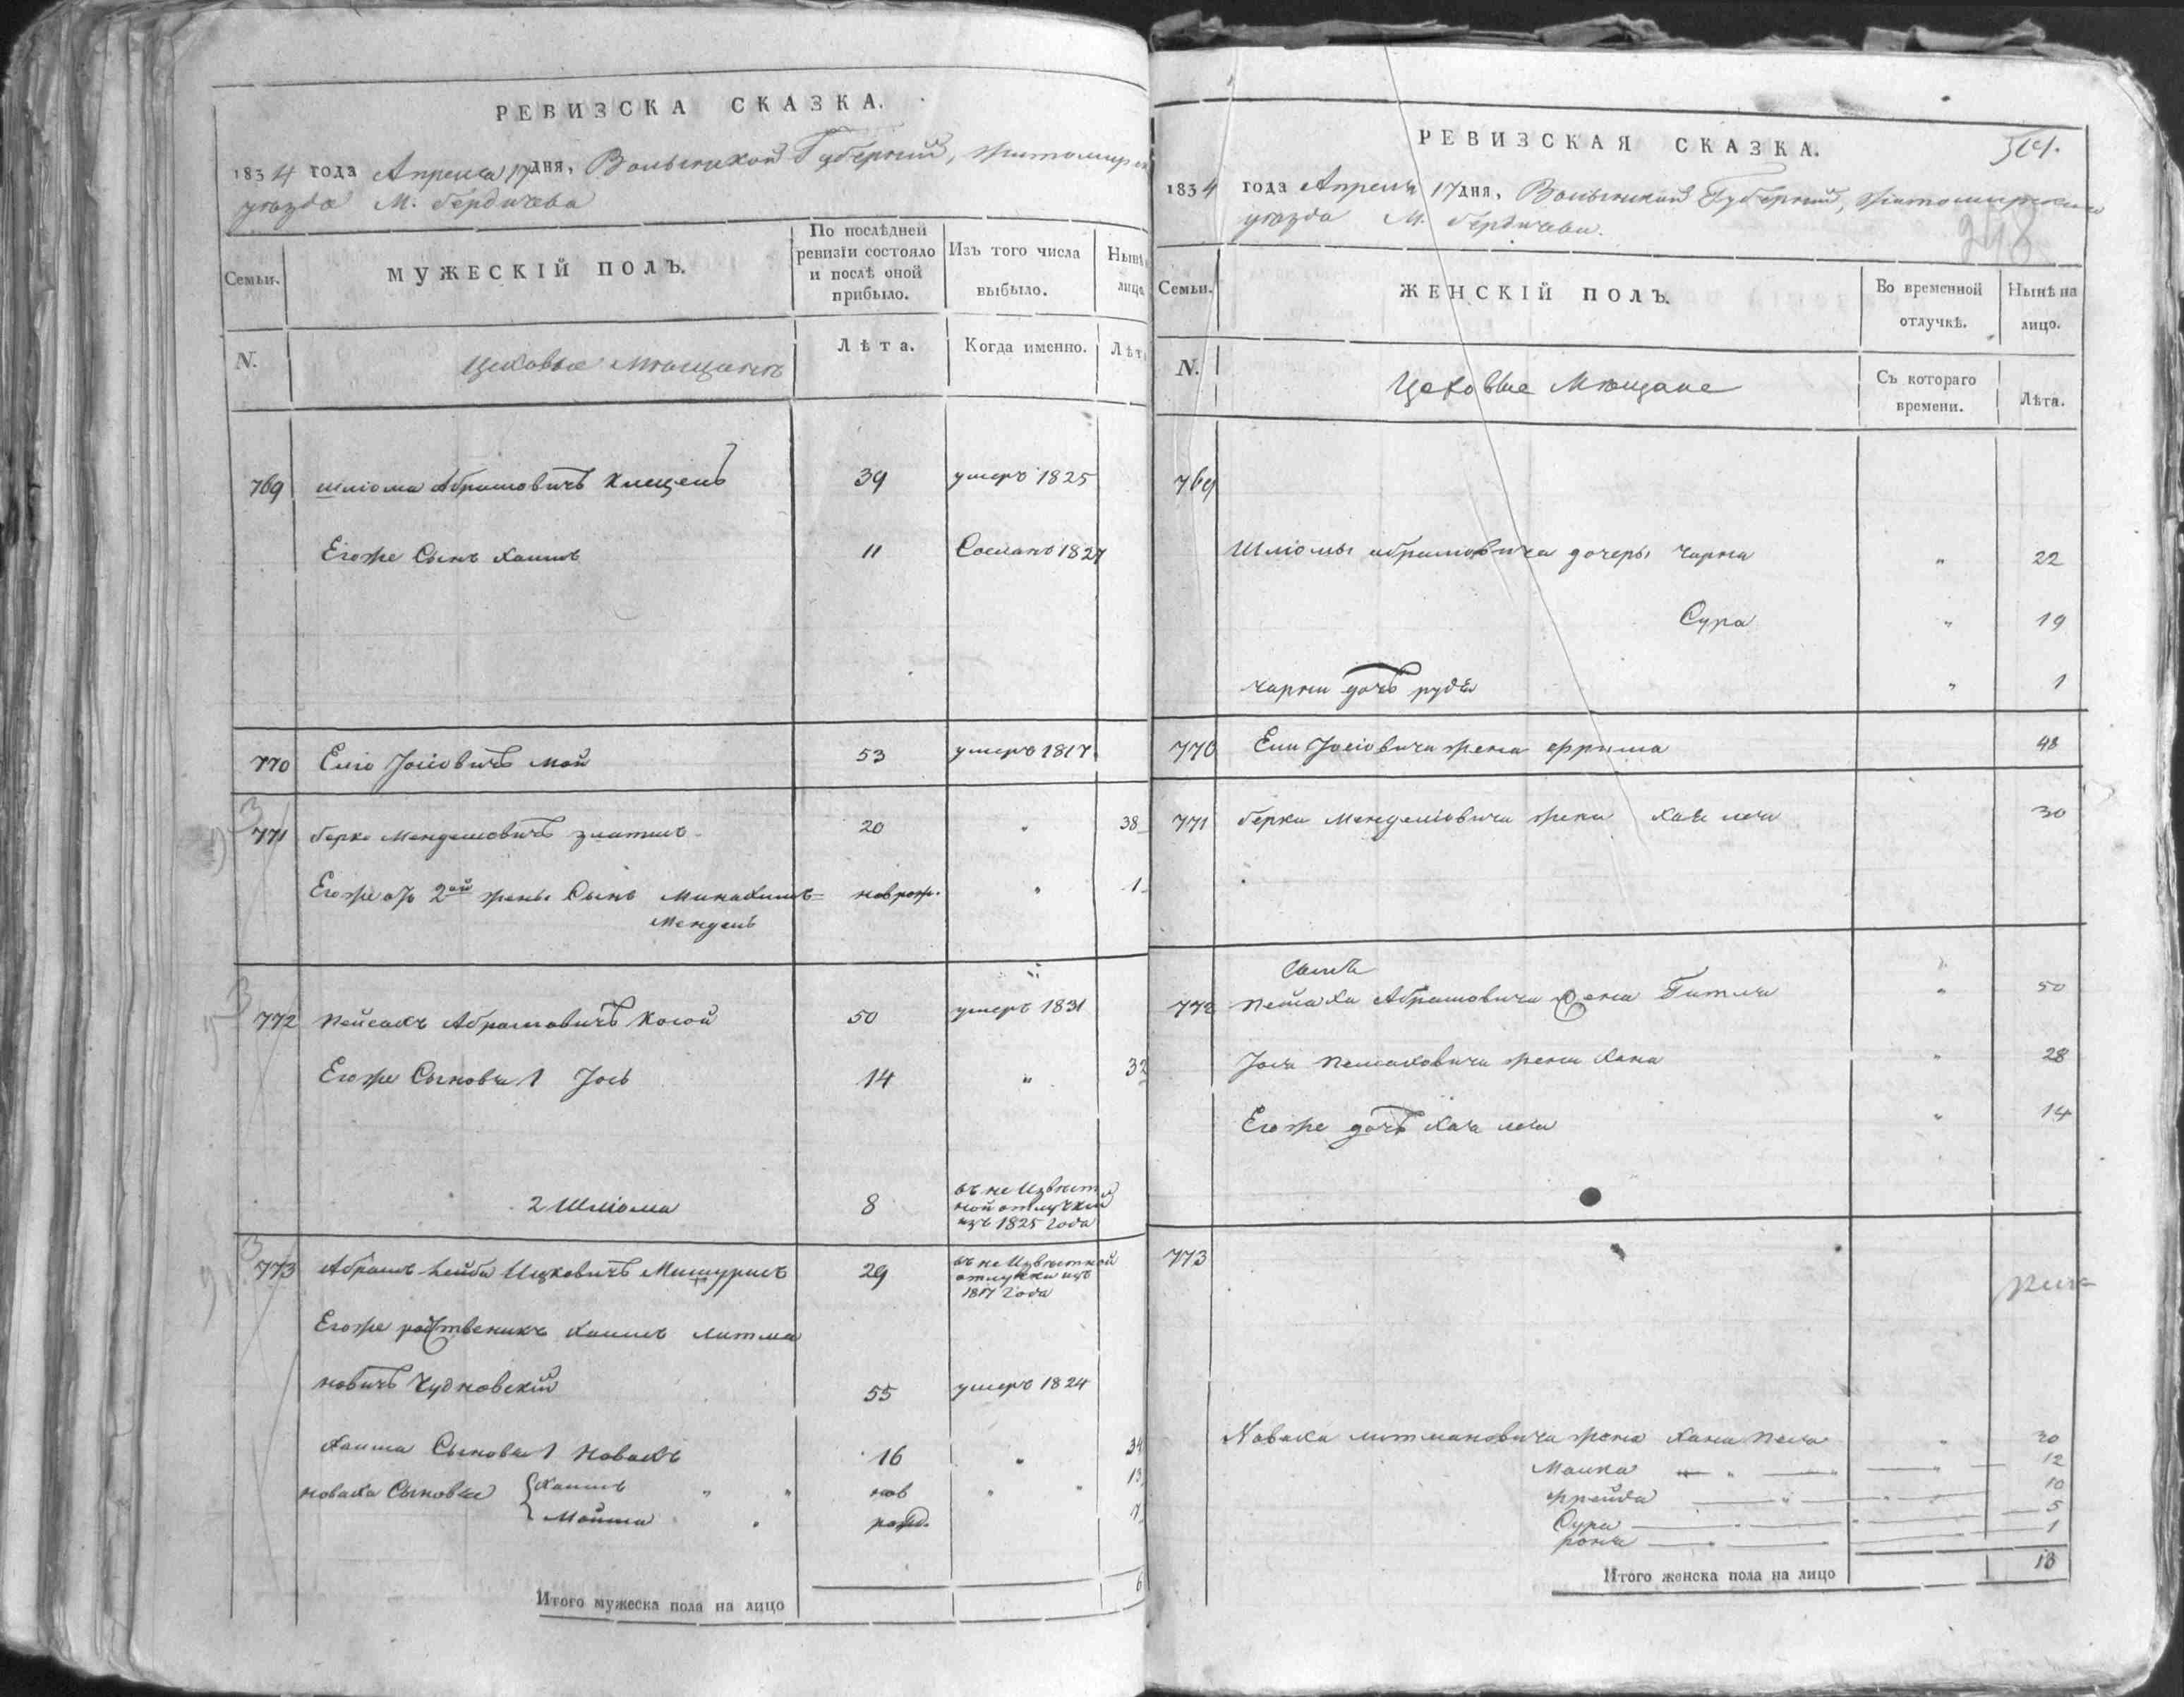 РЕВИЗСКА СКАЗКА.
1834 года Апреля 17 дня, Волынской Губерніи, Житомирск
уезда М. Бердичева
Семьи. МУЖЕСКІЙ ПОЛЪ. По послѣдней ревизіи состояло и послѣ оной прибыло. Изъ того числа выбыло. Нынѣ лицо
N. Цеховые Мѣщане Лѣта. Когда именно. Лѣт
769 Шліома Абрамовичъ Клещель 39 умеръ 1825
Егоже Сынъ Хаимъ 11 Сосланъ 1827
770 Еліо Јосіовичъ Мой 53 умеръ 1817
771 Берко Менделіовичъ Златинъ 20 " 38
Егоже отъ 2ой жены Сынъ Минахимъ= новрож. " 1
Мендель
772 Пейсахъ Абрамовичъ Косой 50 умеръ 1831
Егоже Сыновья 1 Јось 14 " 32
2 Шліома 8 въ не Извѣст
ной отлучки
изъ 1825 года
773 Абрамъ Лейба Ицковичъ Мишурисъ 29 въ не Извѣстной
отлучки изъ
1817 Года
Егоже родственикъ Хаимъ Литма
новичъ Чудновскій 55 умеръ 1824
Хаима Сыновья 1 Новахъ 16 " 34
Новаха Сыновья { Хаимъ " " нов " " 13
Мошко " рожд. 7
Итого мужеска пола на лицо 6
РЕВИЗСКАЯ СКАЗКА.
1834 года Апреля 17 дня, Волынской Губерніи, Житомирскаго
уезда М. Бердичева.
248
Семьи. ЖЕНСКІЙ ПОЛЪ. Во временной отлучкѣ. Нынѣ на лицо.
N. Цеховые Мѣщане Съ котораго времени. Лѣта.
769
Шліомы Абрамовича дочеры Чарна " 22
Сура " 19
Чарни дочь Рудя " 1
770 Ели Јосіовича жена Фрима 48
771 Берки Менделіовича жена Хая Леа 30
772 Пейсаха Абрамовича жена Гитля " 50
Јося Пейсаховича жена Хана " 28
Егоже дочь Хая Леа " 14
773
Новаха Литмановича жена Хана Песа " 30
Малка " " 12
Фрейда " " 10
Сура " " 5
1
Итого женска пола на лицо 13